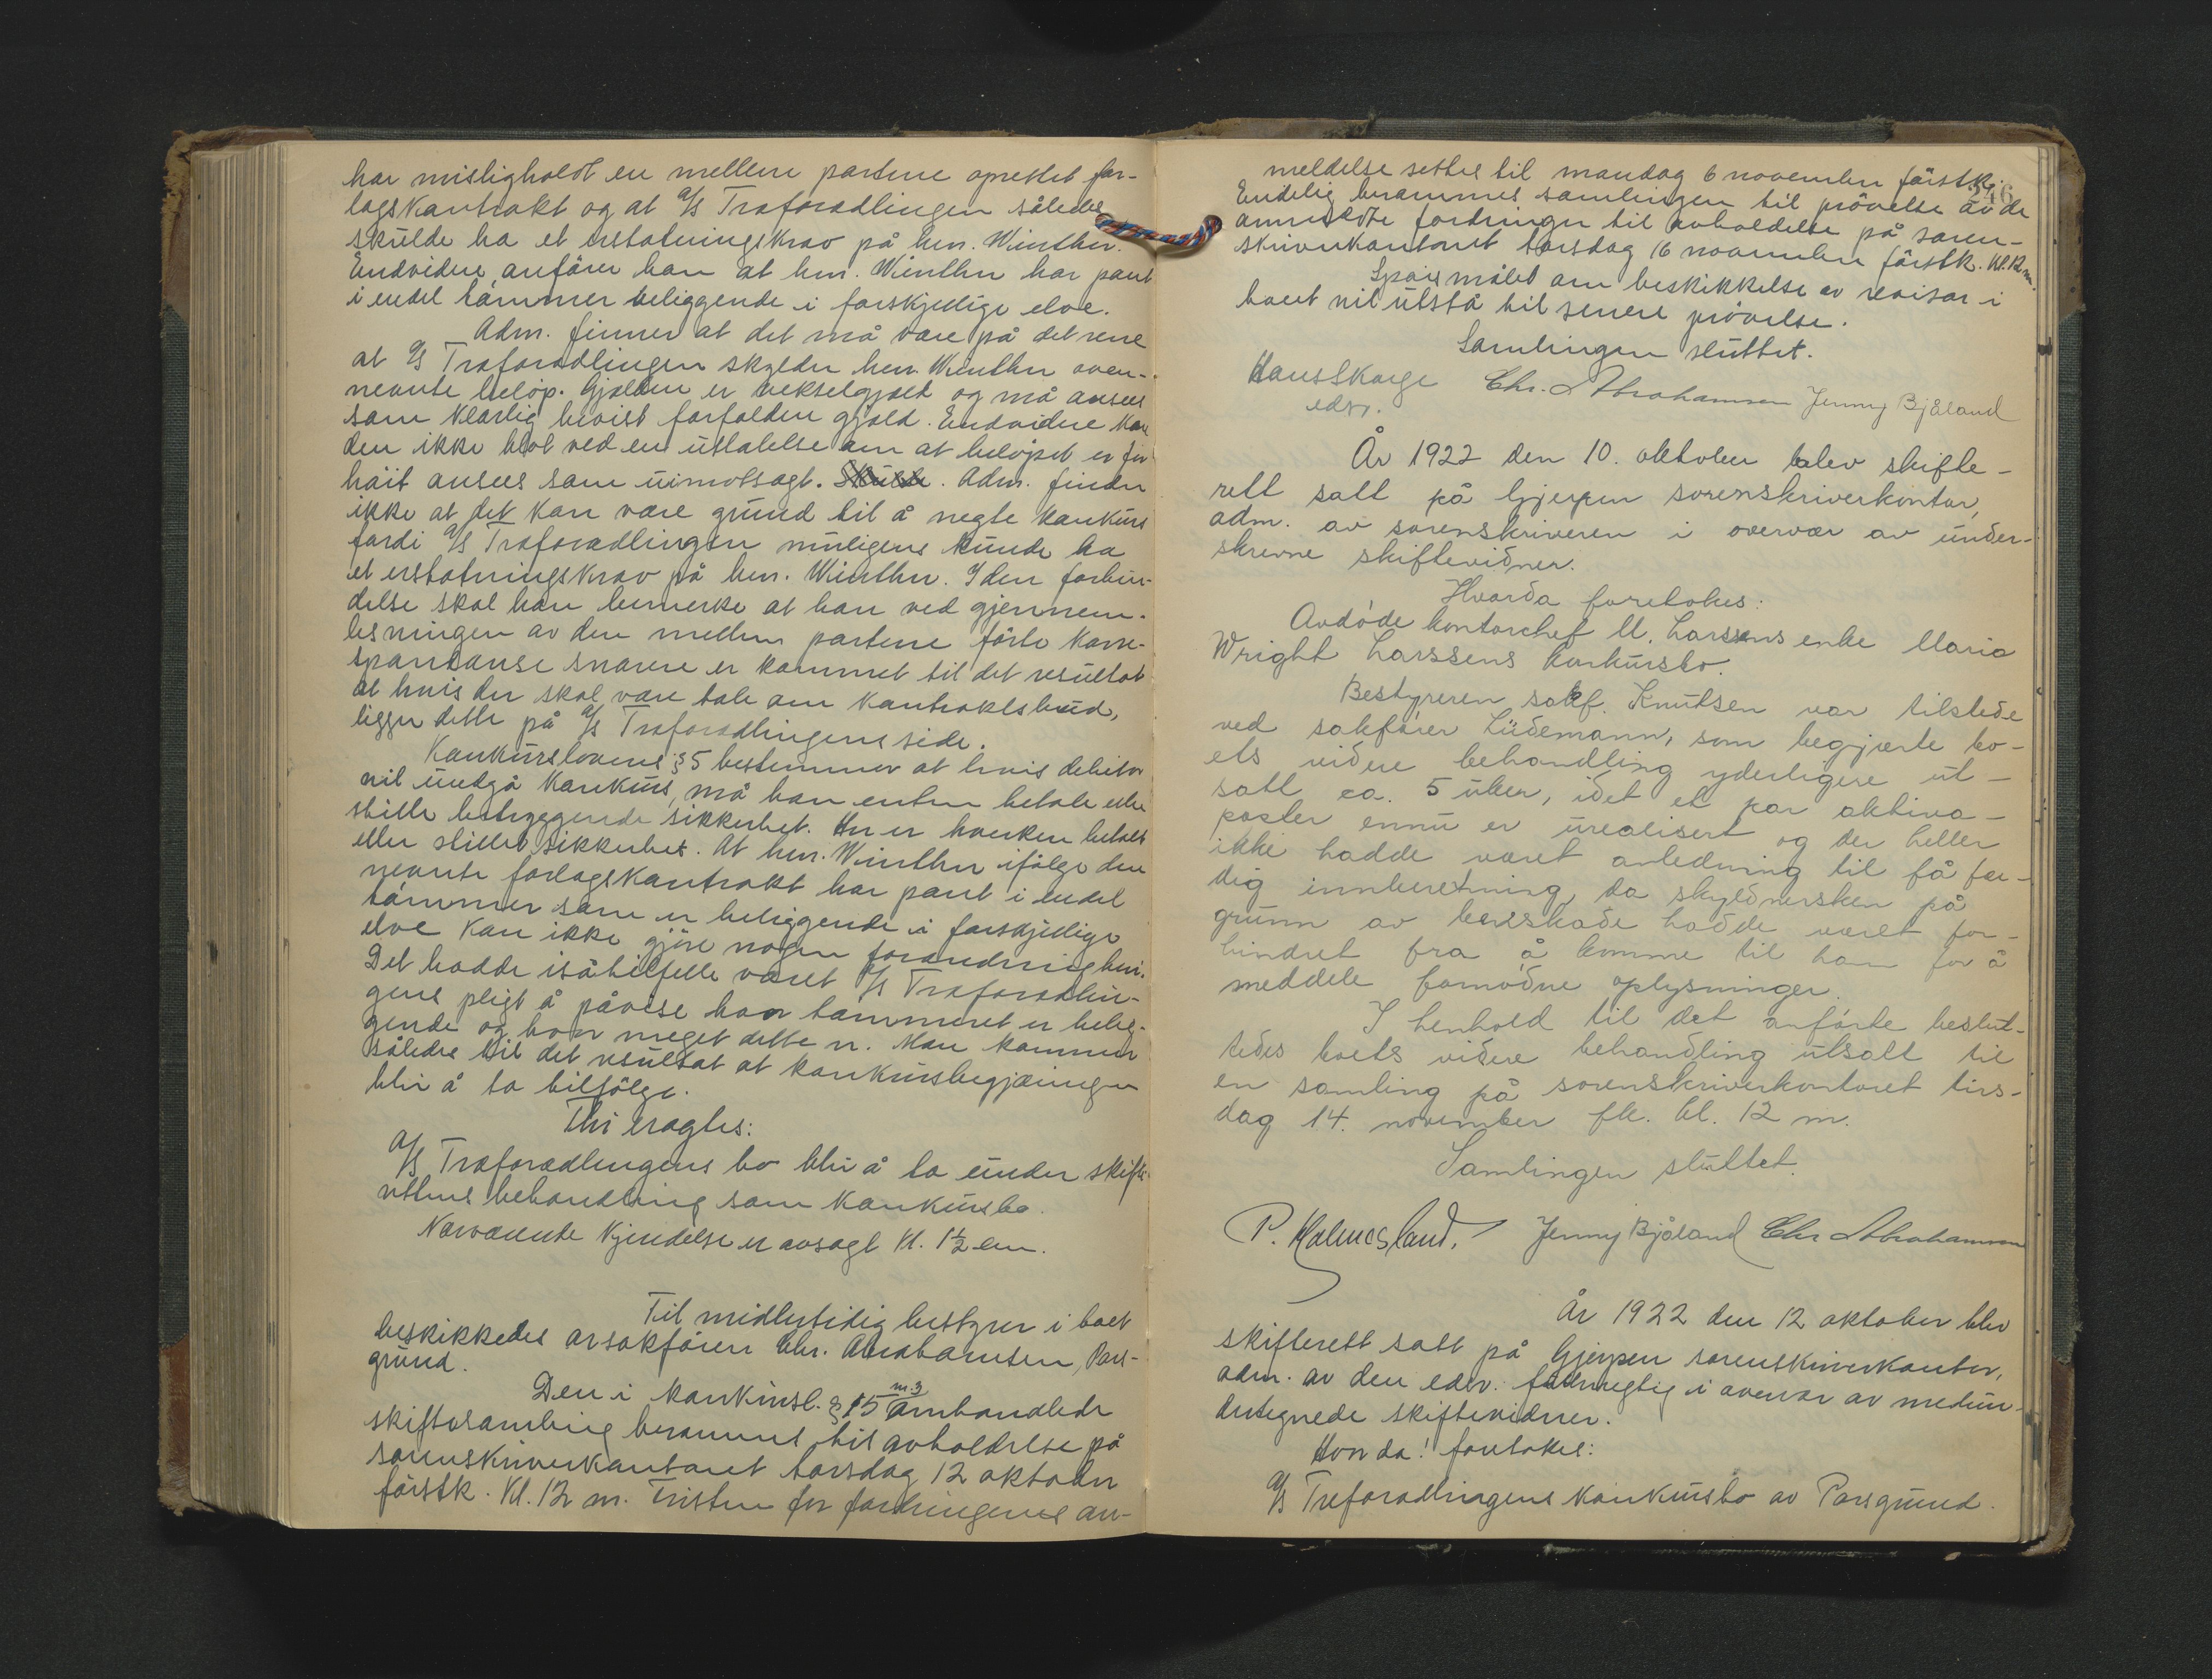 har misligholdt en mellem partene oprettet for-
lagskontrakt og at A/S Træforædlingen således
skulde ha et erstatningskrav på hrr. Winther.
Endvidere anfører han at hrr. Winther har pant
i endel tømmer beliggende i forskjellige elve.
Adm. finner at det må være på det rene
at A/S Træforædlingen skylder hrr. Winther oven-
nevnte beløp. Gjælden er vekselgjæld og må ansees
som klarlig bevist forfalden gjæld. Endvidere kan
den ikke blot ved en uttalelse om at beløpet er for
høit ansees som uimotsagt. Skulde. Adm. finder
ikke at det kan være grund til å negte konkurs
fordi A/S Træforædlingen muligens kunde ha
et erstatningskrav på hrr. Winther. I den forbin-
delse skal han bemerke at han ved gjennem-
lesningen av den mellem partene førte korre-
spondanse snarere er kommet til det resultat
at hvis der skal være tale om kontraktsbrud,
ligger dette på A/S Træforædlingens side.
Konkurslovens § 5 bestemmer at hvis debitor
vil undgå konkurs, må han enten betale eller
stille betryggende sikkerhet. Her er hverken betalt
eller stillet sikkerhet. At hrr. Winther ifølge den
nevnte forlagskontrakt har pant i endel
tømmer som er beliggende i forskjellige
elve kan ikke gjøre nogen forandring heri.
Det hadde isåtilfelle været A/S Træforædlin-
gens pligt å påvise hvor tømmeret er belig-
gende og hvor meget dette er. Man kommer
således til det resultat at konkursbegjæringen
blir å ta tilfølge.
Thi eragtes:
A/S Træforædlingens bo blir å ta under skifte-
rettens behandling som konkursbo.
Nærværende kjendelse er avsagt kl. 1 1/2 em.
Til midlertidig bestyrer i boet
beskikkedes orsakfører Chr. Abrahamsen, Pors-
grund.
Den i konkursl. § 15 nr. 3 omhandlede
skiftesamling berammes til avholdelse på
sorenskriverkontoret torsdag 12 oktober
førstk. kl. 12 m. Fristen for fordringenes an-
meldelse settes til mandag 6 november førstk.
Endelig berammes samlingen til prøvelse av de
anmeldte fordringer til avholdelse på soren-
skriverkontoret torsdag 16 november førstk. kl. 12 m.
Spørsmålet om beskikkelse av revisor i
boet vil utstå til senere prøvelse.
Samlingen sluttet.
Hans Skarge Chr. Abrahamsen Jenny Bjåland
edsv.
År 1922 den 10. oktober blev skifte-
rett satt på Gjerpen sorenskriverkontor,
adm. av sorenskriveren i overvær av under-
skrevne skiftevidner.
Hvorda foretokes:
Avdøde kontorchef M. Larssens enke Maria
Wright Larssens konkursbo.
Bestyreren sakf. Knutsen var tilstede
ved sakfører Lüdemann, som begjærte bo-
ets videre behandling yderligere ut-
satt ca. 5 uker, idet et par aktiva-
poster ennu er urealisert og der heller
ikke hadde været anledning til få fær-
dig innberetning, da skyldnersken på
grunn av benskade hadde været for-
hindret fra å komme til ham for å
meddele fornødne oplysninger.
I henhold til det anførte beslut-
tedes boets videre behandling utsatt til
en samling på sorenskriverkontoret tirs-
dag 14. november fk. kl. 12 m.
Samlingen sluttet.
P. Holmesland. Jenny Bjåland Chr Abrahamsen
År 1922 den 12 oktober blev
skifterett satt på Gjerpen sorenskriverkontor,
adm. av den edsv. fullmegtig i overvær av medun-
dertegnede skiftevidner.
Hvorda! foretokes:
A/S Træforædlingens konkursbo av Porsgrund.